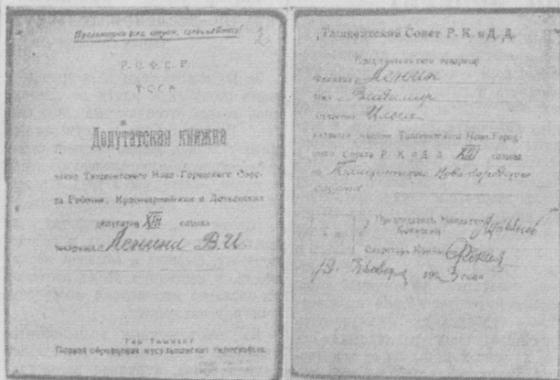 Пролетарии всех стран, соединяйтесь!
Р.С.Ф.С.Р.
Т С С Р
Депутатская книжка
члена Ташкентского Ново-Городского Сове-
та Рабочих, Красноармейских и Дехканских
депутатов XIII созыва
товарища Ленина В.И.
Гор. Ташкент
Первая образцовая мусульманская типография.
Ташкентский Совет Р. К. и Д. Д.
Предъявитель сего товарищ
фамилия Ленин
имя Владимир
отчество Ильич
является членом Ташкентского Ново-Город-
ского Совета Р. К. и Д. Д. XIII созыва
от
Ново-городского
Секретарь
192 3 года